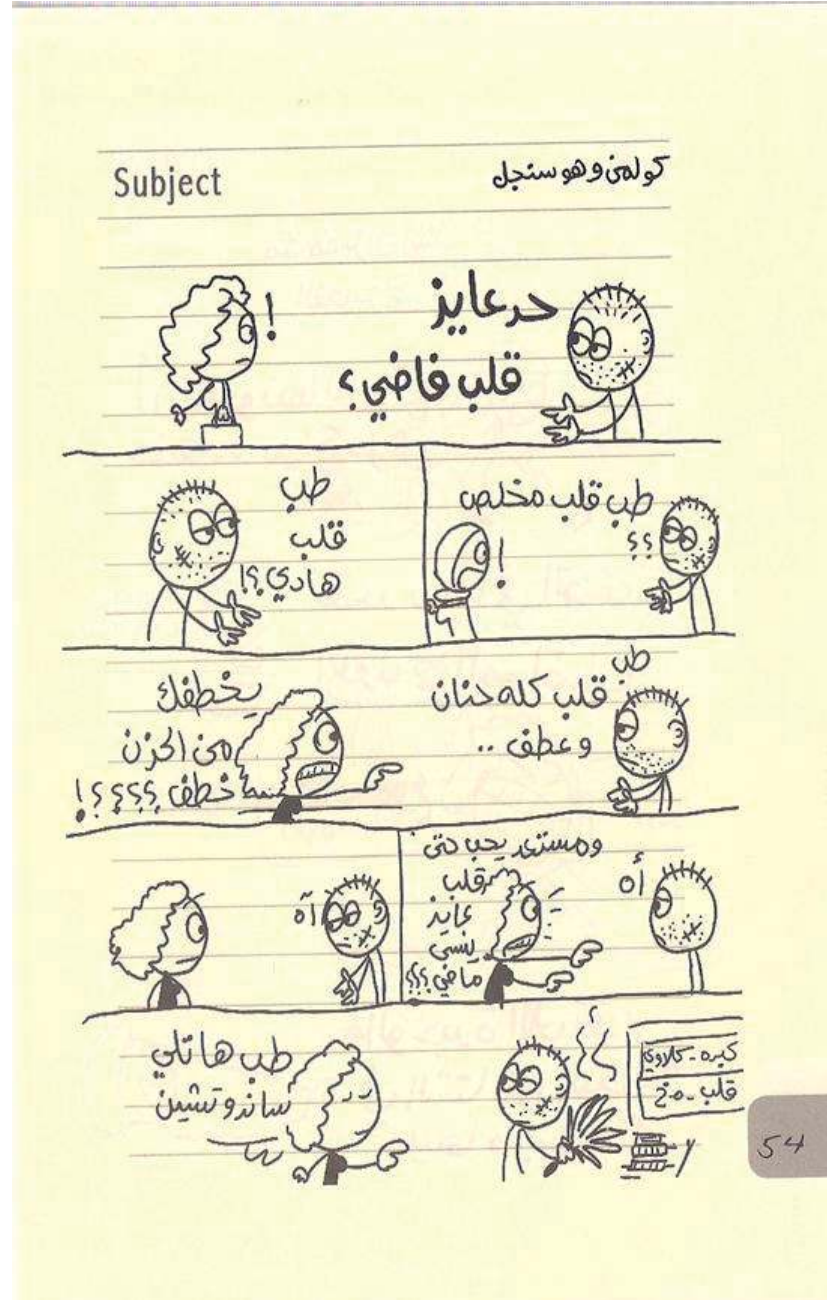 Subject
كولمن وهو سنجل
حد عايز
قلب فاضي؟
!
طب قلب مخلص
؟؟
!
طب
قلب
هادي؟!
طب
قلب كله حنان
وعطف ..
يخطفك
من الحزن
خطف ؟؟؟؟!
أه
ومستعد يحب حتى
قلب
عايز
ينسى
ماضي؟؟؟
آه
كبده - كلاوي
قلب - مخ
طب هاتلي
ساندوتشين
54